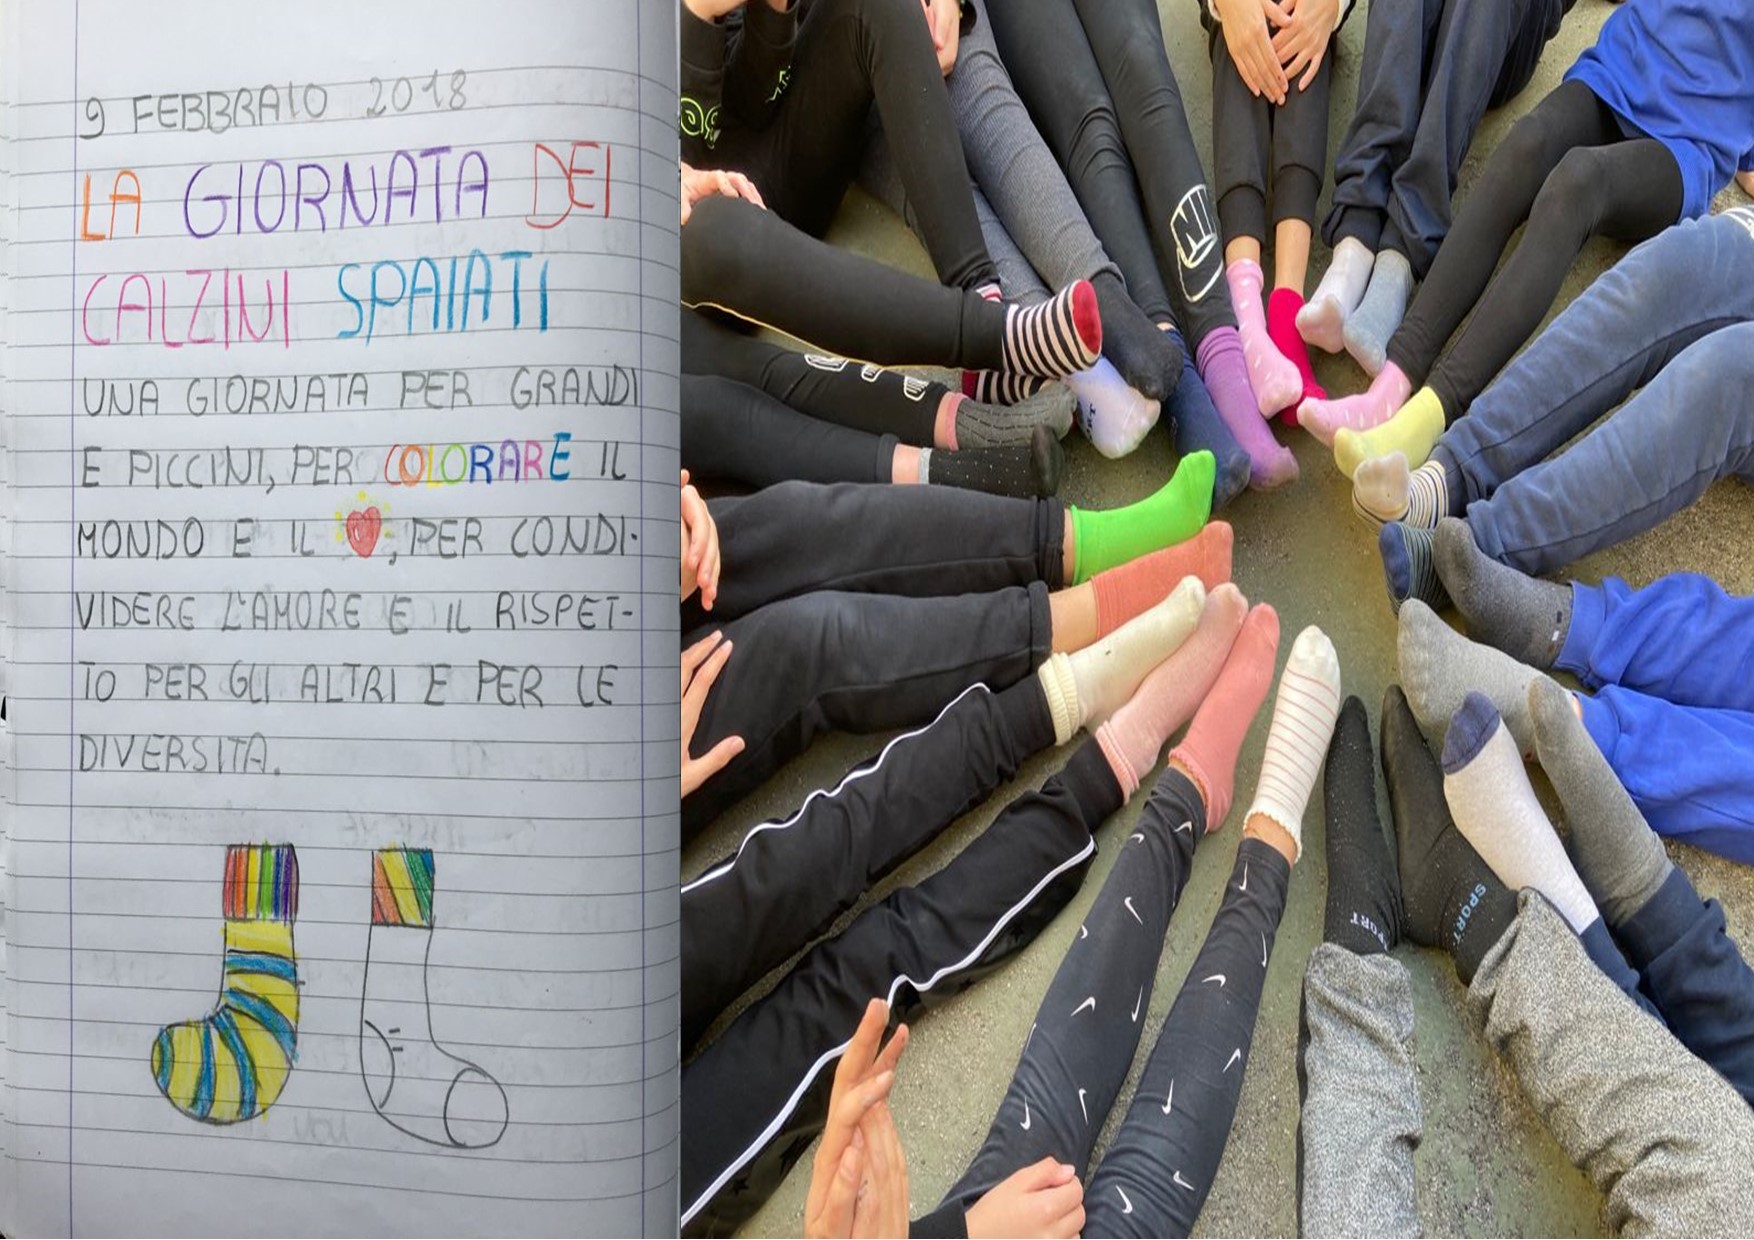 9 FEBBRAIO 2018
LA GIORNATA DEI
CALZINI SPAIATI
UNA GIORNATA PER GRANDI
E PICCINI, PER COLORARE IL
MONDO E IL ❤, PER CONDI-
VIDERE L'AMORE E IL RISPET-
TO PER GLI ALTRI E PER LE
DIVERSITA.
SPORT
SPORT